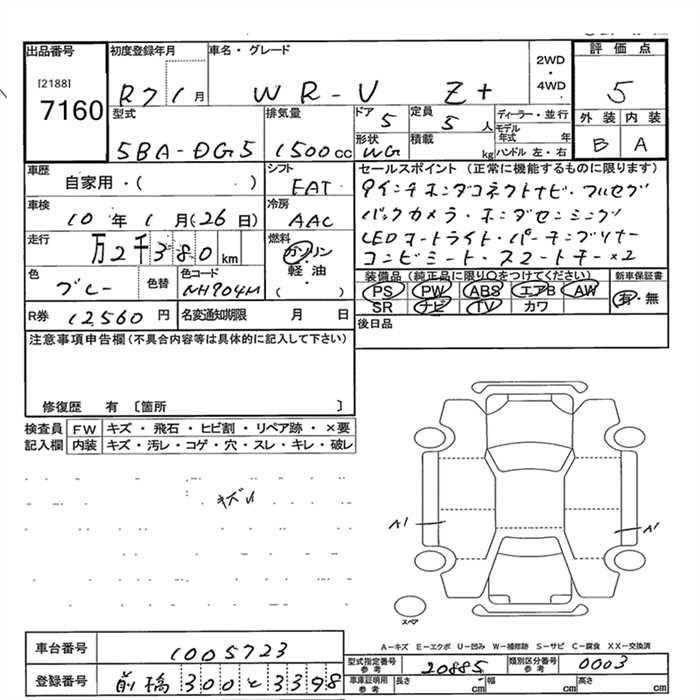 出品番号
[2188]
7160
初度登録年月
R7 1月
車名・グレード
WR-V Z+
2WD・4WD
評価点
5
外装 内装
B A
型式
5BA-DG5
排気量
1500cc
ドア
5
定員
5人
ディーラー・並行
モデル年式 年
ハンドル 左・右
形状
WG
積載
kg
車歴
自家用・( )
シフト
FAT
車検
10年1月(26日)
冷房
AAC
走行
万2千380km
燃料
ガソリン・軽油
( )
色
ブルー
色替
色コード
NH904M
R券
12560円
名変通知期限 月 日
セールスポイント (正常に機能するものに限ります)
9インチホンダコネクトナビ・フルセグ
バックカメラ・ホンダセンシング
LEDオートライト・パーキングソナー
コンビシート・スマートキー×2
装備品(純正品に限り○をつけてください)
PS PW ABS エアB AW
SR ナビ TV カワ
新車保証書
有・無
後日品
注意事項申告欄(不具合内容等は具体的に記入して下さい)
修復歴 有 〔箇所 〕
検査員記入欄
FW キズ・飛石・ヒビ割・リペア跡・×要
内装 キズ・汚レ・コゲ・穴・スレ・キレ・破レ
A1
A1
スペア
A-キズ E-エクボ U-凹み W-補修跡 S-サビ C-腐食 XX-交換済
車台番号
1005723
登録番号
前橋 300 と 3398
型式指定番号 参考
20885
類別区分番号 参考
0003
車庫証明用 参考
長さ cm 幅 cm 高さ cm